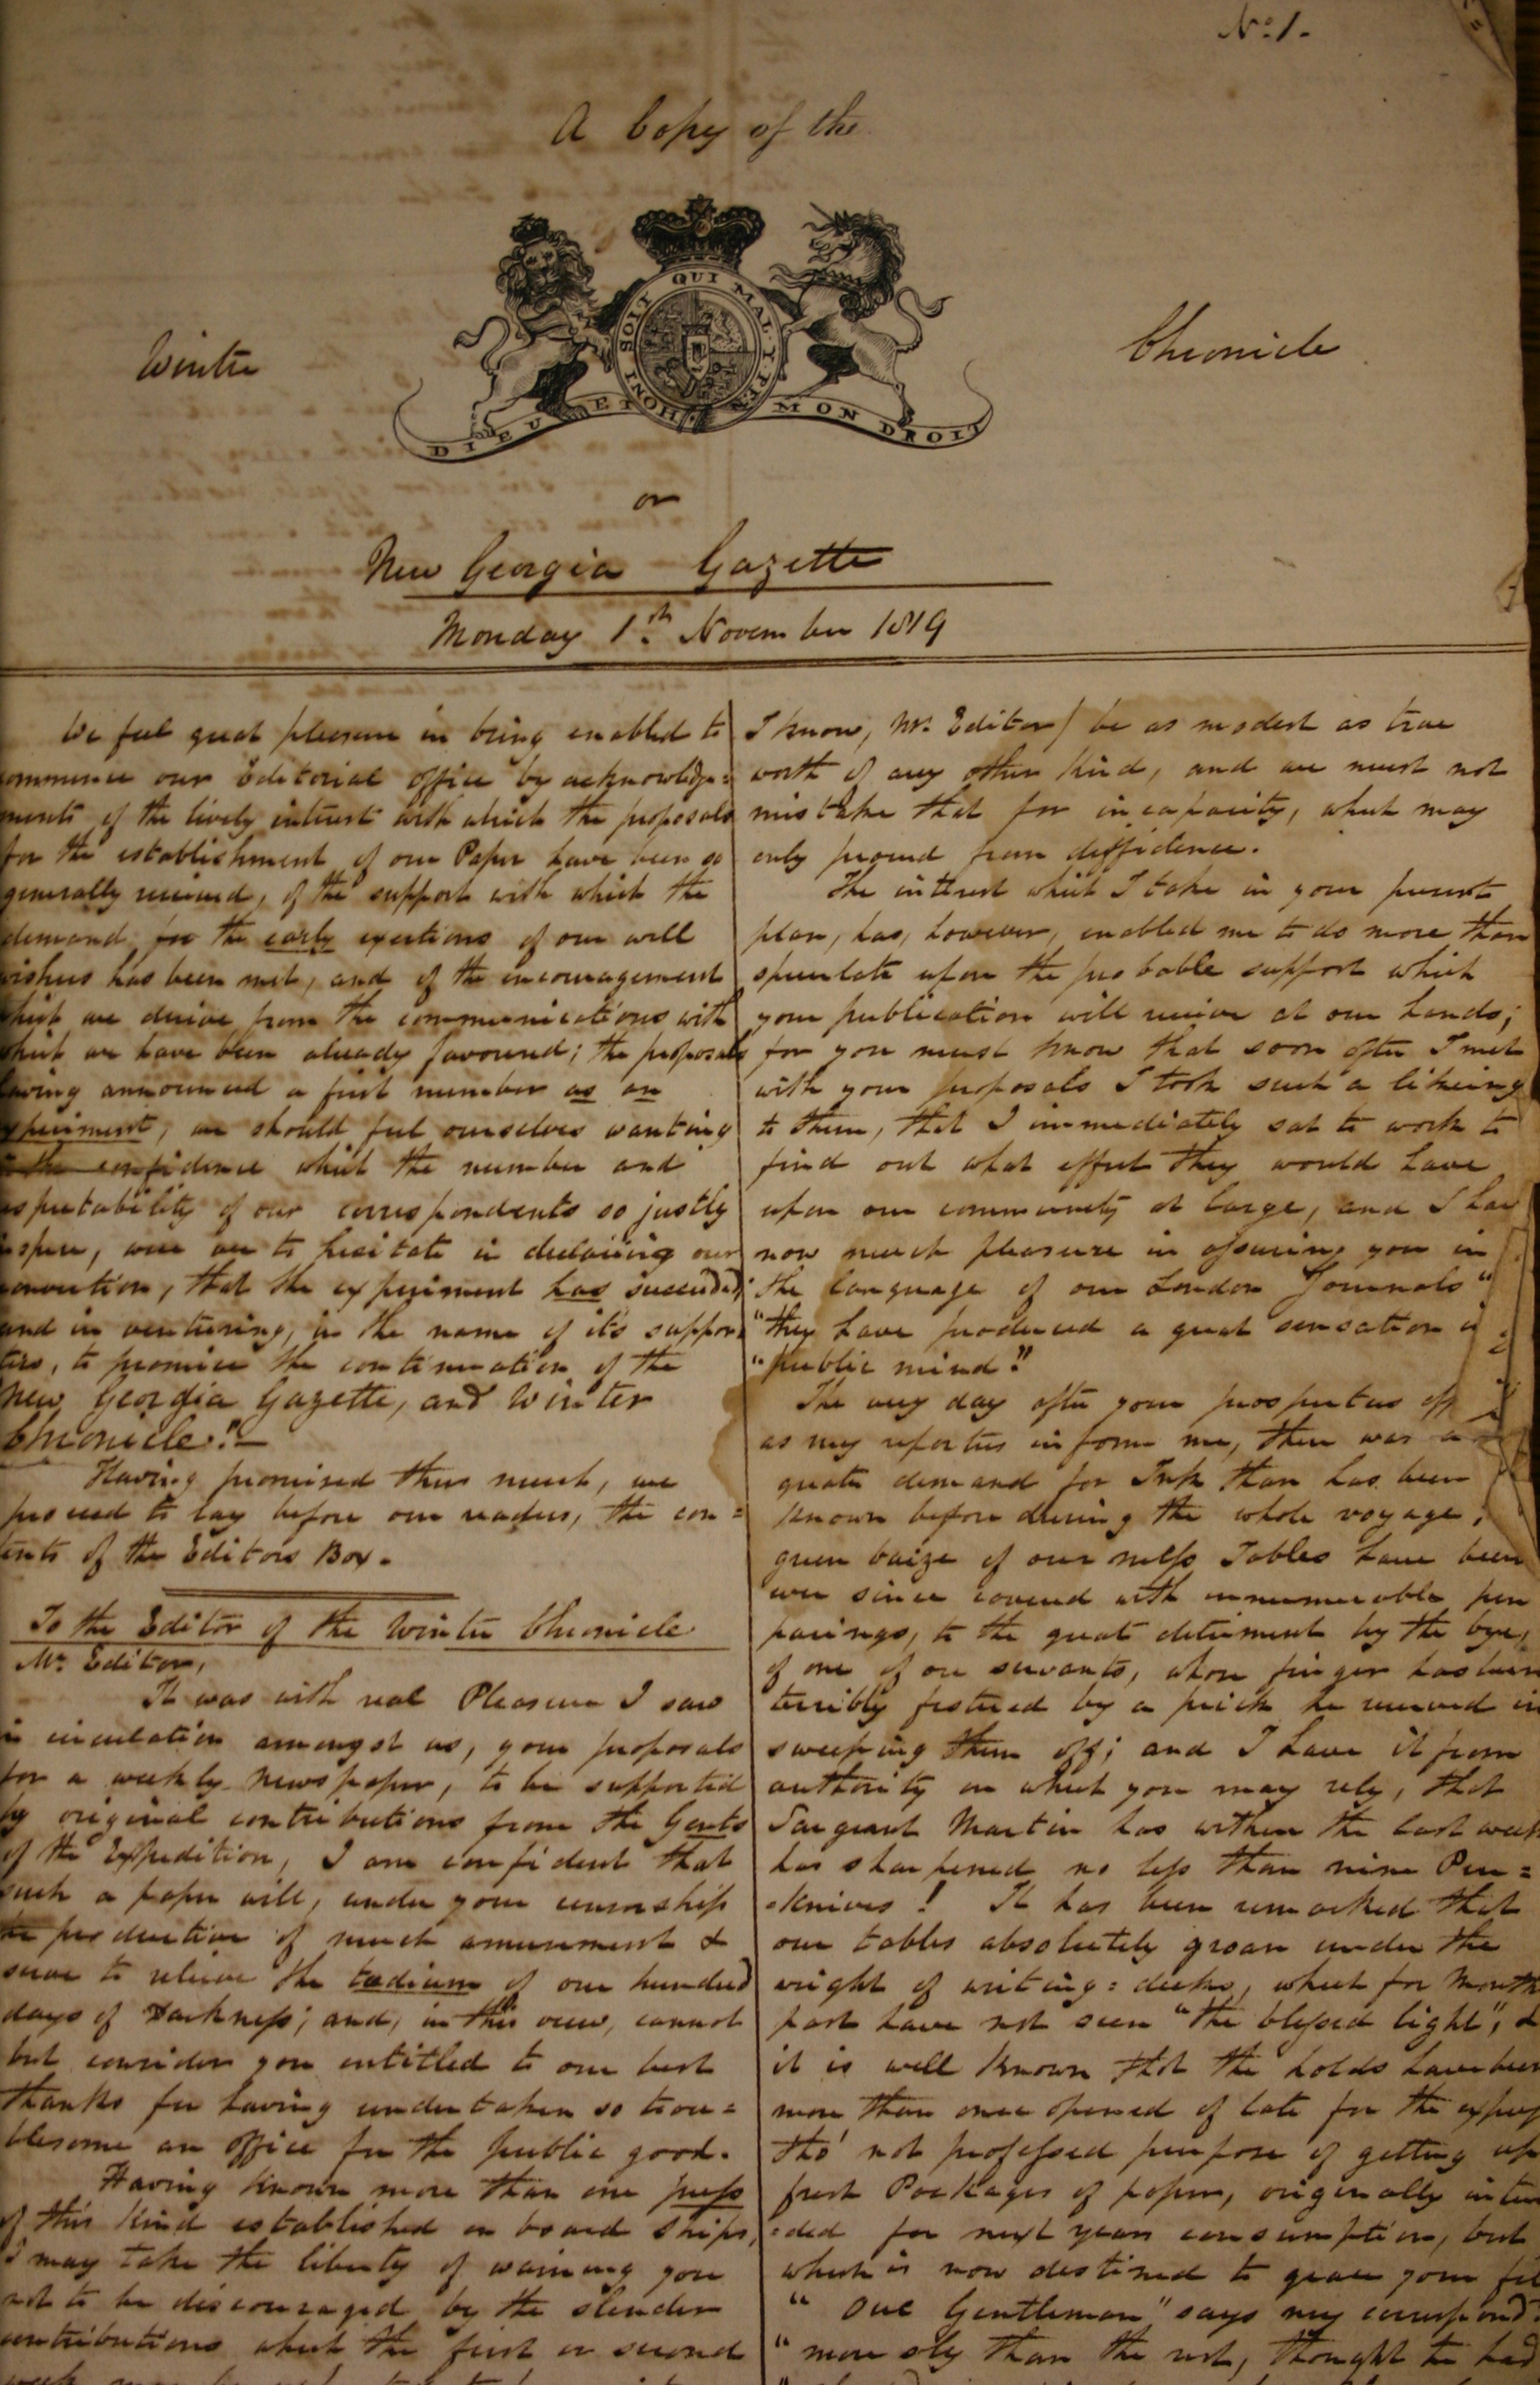 No. 1.
A Copy of the
HONI SOIT QUI MAL Y PENSE
Winter
Chronicle
DIEU ET MON DROIT
or
New Georgia Gazette
Monday 1st. November 1819
We feel great pleasure in being enabled to
ommence our Editorial office by acknowledge=
ments of the lively interest with which the proposals
for the establishment of our Paper have been so
generally received, of the support with which the
demand for the early exertions of our well
wishers has been met, and of the encouragement
which we derive from the communications with
which we have been already favoured; the proposals
having announced a first number as an
xperiment, we should feel ourselves wanting
in the confidence which the number and
espectability of our correspondents so justly
nspire, were we to hesitate in declaring our
conviction, that the experiment has succeeded;
and in venturing, in the name of it's suppor=
ters, to promise the continuation of the
New Georgia Gazette, and Winter
Chronicle."—
Having promised thus much, we
proceed to lay before our readers, the con=
tents of the Editors Box.
To the Editor of the Winter Chronicle
Mr. Editor,
It was with real Pleasure I saw
in circulation amongst us, your proposals
for a weekly Newspaper, to be supported
by original contributions from the Gents
of the Expedition, I am confident that
such a paper will, under your censorship
be productive of much amusement &
serve to relieve the tædium of our hundred
days of Darkness; and, in this view, cannot
but consider you entitled to our best
thanks for having undertaken so trou=
blesome an office for the public good.
Having known more than one press
of this Kind established on board ships,
I may take the liberty of warning you
not to be discouraged by the slender
contributions which the first or second
I know, Mr. Editor) be as modest as true
worth of any other Kind, and we must not
mistake that for incapacity, which may
only proceed from diffidence.
The interest which I take in your present
plan, has, however, enabled me to do more than
speculate upon the probable support which
your publication will receive at our hands;
for you must know that soon after I met
with your proposals I took such a likeing
to them, that I immediately sat to work to
find out what effect they would have
upon our community at large, and I hav
now much pleasure in assuring you in
the language of our London Journals "
"they have produced a great sensation i
"public mind."
The very day after your prospectus
as my reporters inform me, there was a
greater demand for Ink than has been
known before during the whole voyage;
green baize of our mess Tables have been
ever since covered with innumerable pen
parings, to the great detriment by the bye,
of one of our servants, whose finger has been
terribly festered by a prick he received in
sweeping them off; and I have it from
authority on which you may rely, that
Sargeant Martin has within the last week
has sharpened no less than nine Pen=
=knives! It has been remarked that
our tables absolutely groan under the
weight of writing=desks, which for Month
past have not seen "the blessed light", &
it is well known that the holds have been
more than once opened of late for the express
tho' not professed purpose of getting up
fresh Packages of paper, originally inten
=ded for next years consumption, but
which is now destined to grace your
"One Gentleman" says my correspond
"more sly than the rest, thought he had